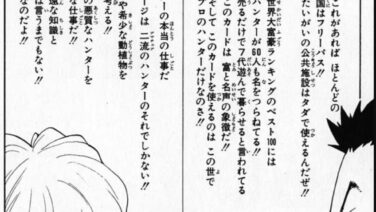 これがあれば ほとんどの
国はフリーパス!!
たいがいの公共施設はタダで使えるんだぜ!!
世界大富豪ランキングのベスト100には
ハンターが6人も名をつらねてる!!
売るだけで7代遊んで暮らせると言われてる
このカードは 富と名声の象徴だ!!
そして このカードを使えるのは この世で
プロのハンターだけなのさ!!
ージは 二流のハンターのそれでしかない!!
ーの本当の仕事だ
や希少な動植物を
考える!!
の悪質なハンターを
な仕事だ!!
遠な知識と
は言うまでもない!!
なのだよ!!